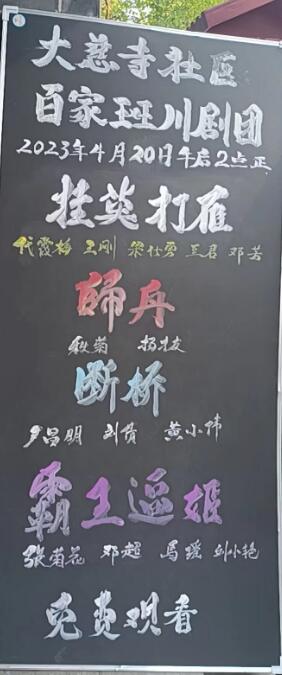 大慈寺社区
百家班川剧团
2023年4月20日午后2点正
挂英打雁
代霞梅 王刚 梁仕勇 王君 邓芳
归舟
秋菊
断桥
尹昌明 刘贵 黄小伟
霸王逼姬
张菊花 邓超 马瑶 刘小艳
免费观看